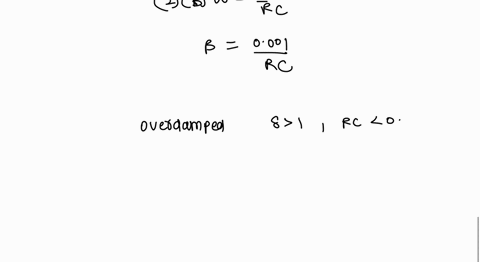 (2)(B) W = /RC
B = 0.001/RC
overdamped 8>1 , RC <0.